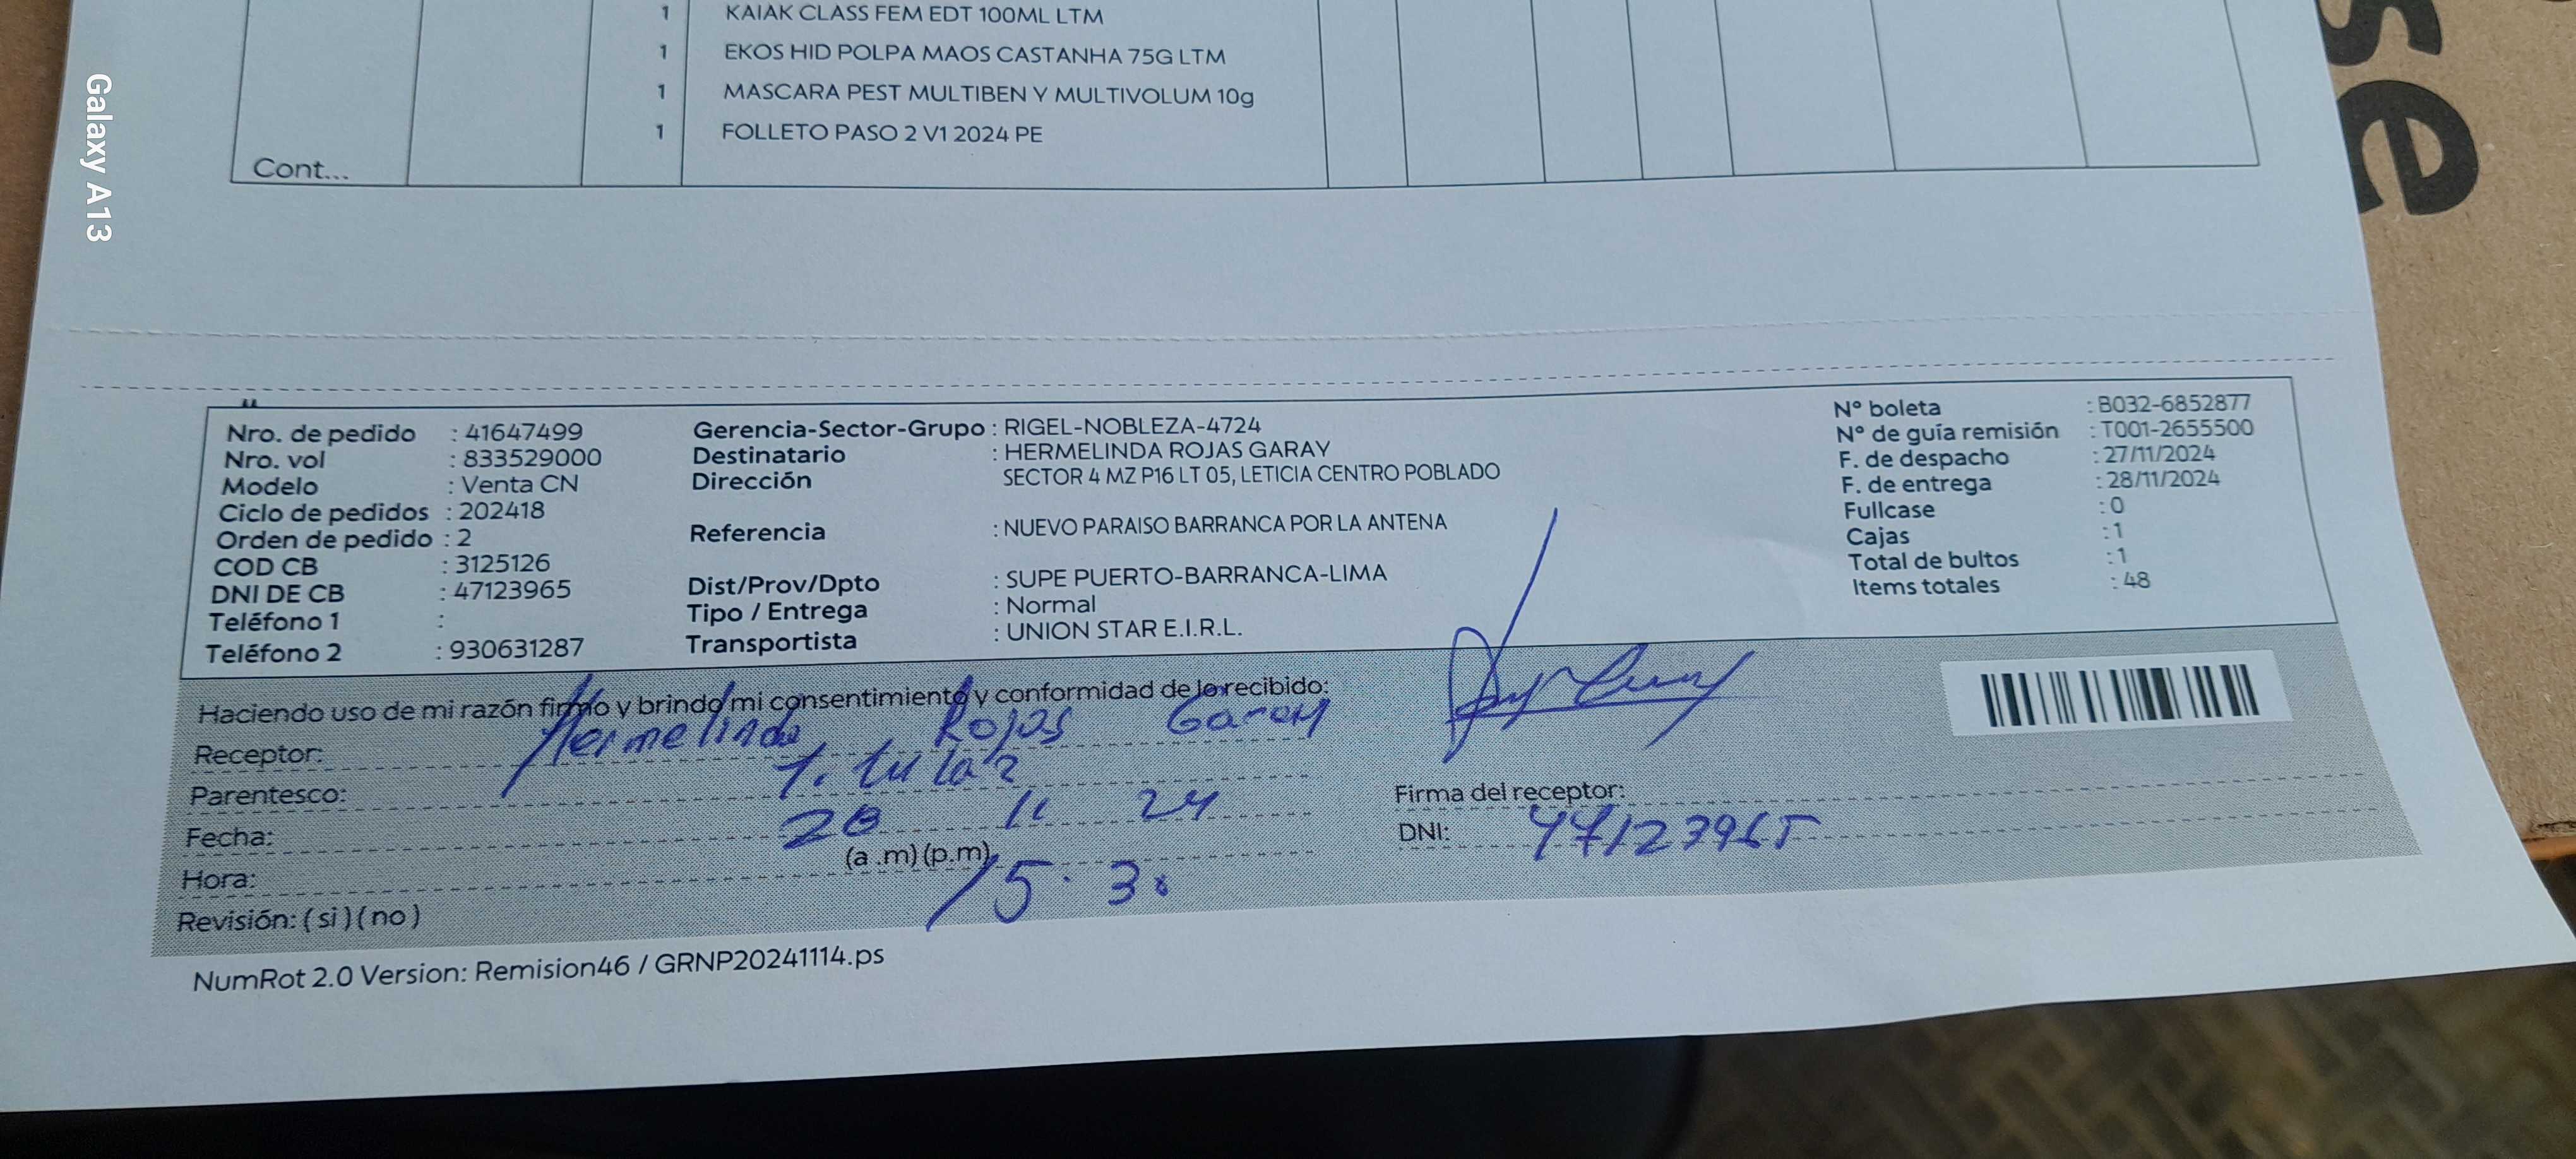 1 KAIAK CLASS FEM EDT 100ML LTM
1 EKOS HID POLPA MAOS CASTANHA 75G LTM
1 MASCARA PEST MULTIBEN Y MULTIVOLUM 10g
1 FOLLETO PASO 2 V1 2024 PE
Cont...
se
Galaxy A13
Nro. de pedido : 41647499
Nro. vol : 833529000
Modelo : Venta CN
Ciclo de pedidos : 202418
Orden de pedido : 2
COD CB : 3125126
DNI DE CB : 47123965
Teléfono 1 :
Teléfono 2 : 930631287
Gerencia-Sector-Grupo : RIGEL-NOBLEZA-4724
Destinatario : HERMELINDA ROJAS GARAY
Dirección SECTOR 4 MZ P16 LT 05, LETICIA CENTRO POBLADO
Referencia : NUEVO PARAISO BARRANCA POR LA ANTENA
Dist/Prov/Dpto : SUPE PUERTO-BARRANCA-LIMA
Tipo / Entrega : Normal
Transportista : UNION STAR E.I.R.L.
N° boleta : B032-6852877
N° de guía remisión : T001-2655500
F. de despacho : 27/11/2024
F. de entrega : 28/11/2024
Fullcase : 0
Cajas : 1
Total de bultos : 1
Items totales : 48
Haciendo uso de mi razón firmo y brindo mi consentimiento y conformidad de lo recibido:
Receptor: Hermelinda Rojas Garay
Parentesco: Titular
Fecha: 28 11 24
(a .m) (p.m)
Hora: 15:30
Revisión: ( si ) ( no )
Firma del receptor:
DNI: 47123965
NumRot 2.0 Version: Remision46 / GRNP20241114.ps